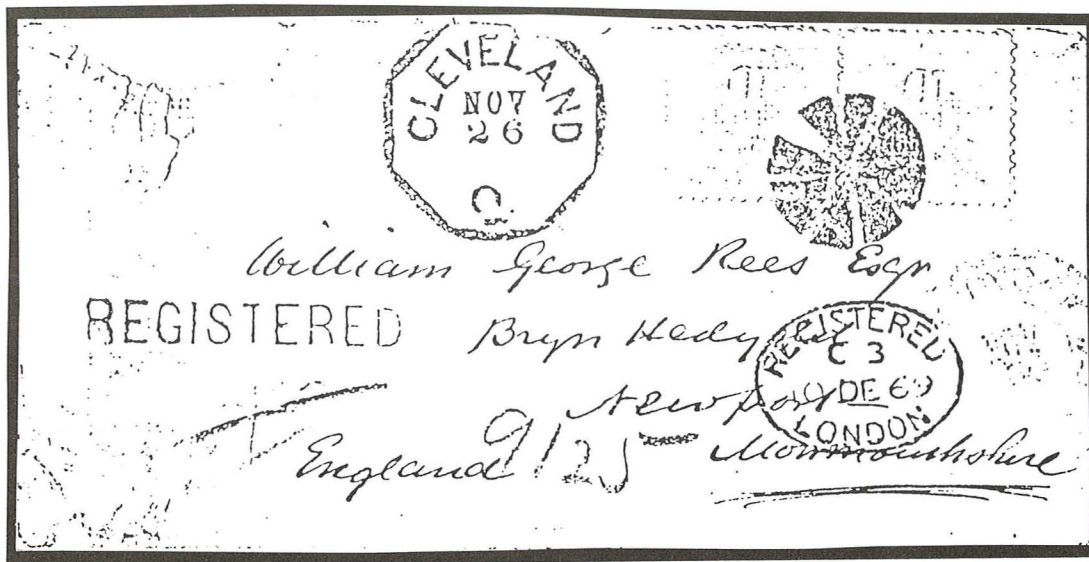 CLEVELAND
NOV
26
O.
William George Rees Esqr
REGISTERED
Bryn
REGISTERED
C 3
10 DE 69
LONDON
Newport
England
Monmouthshire